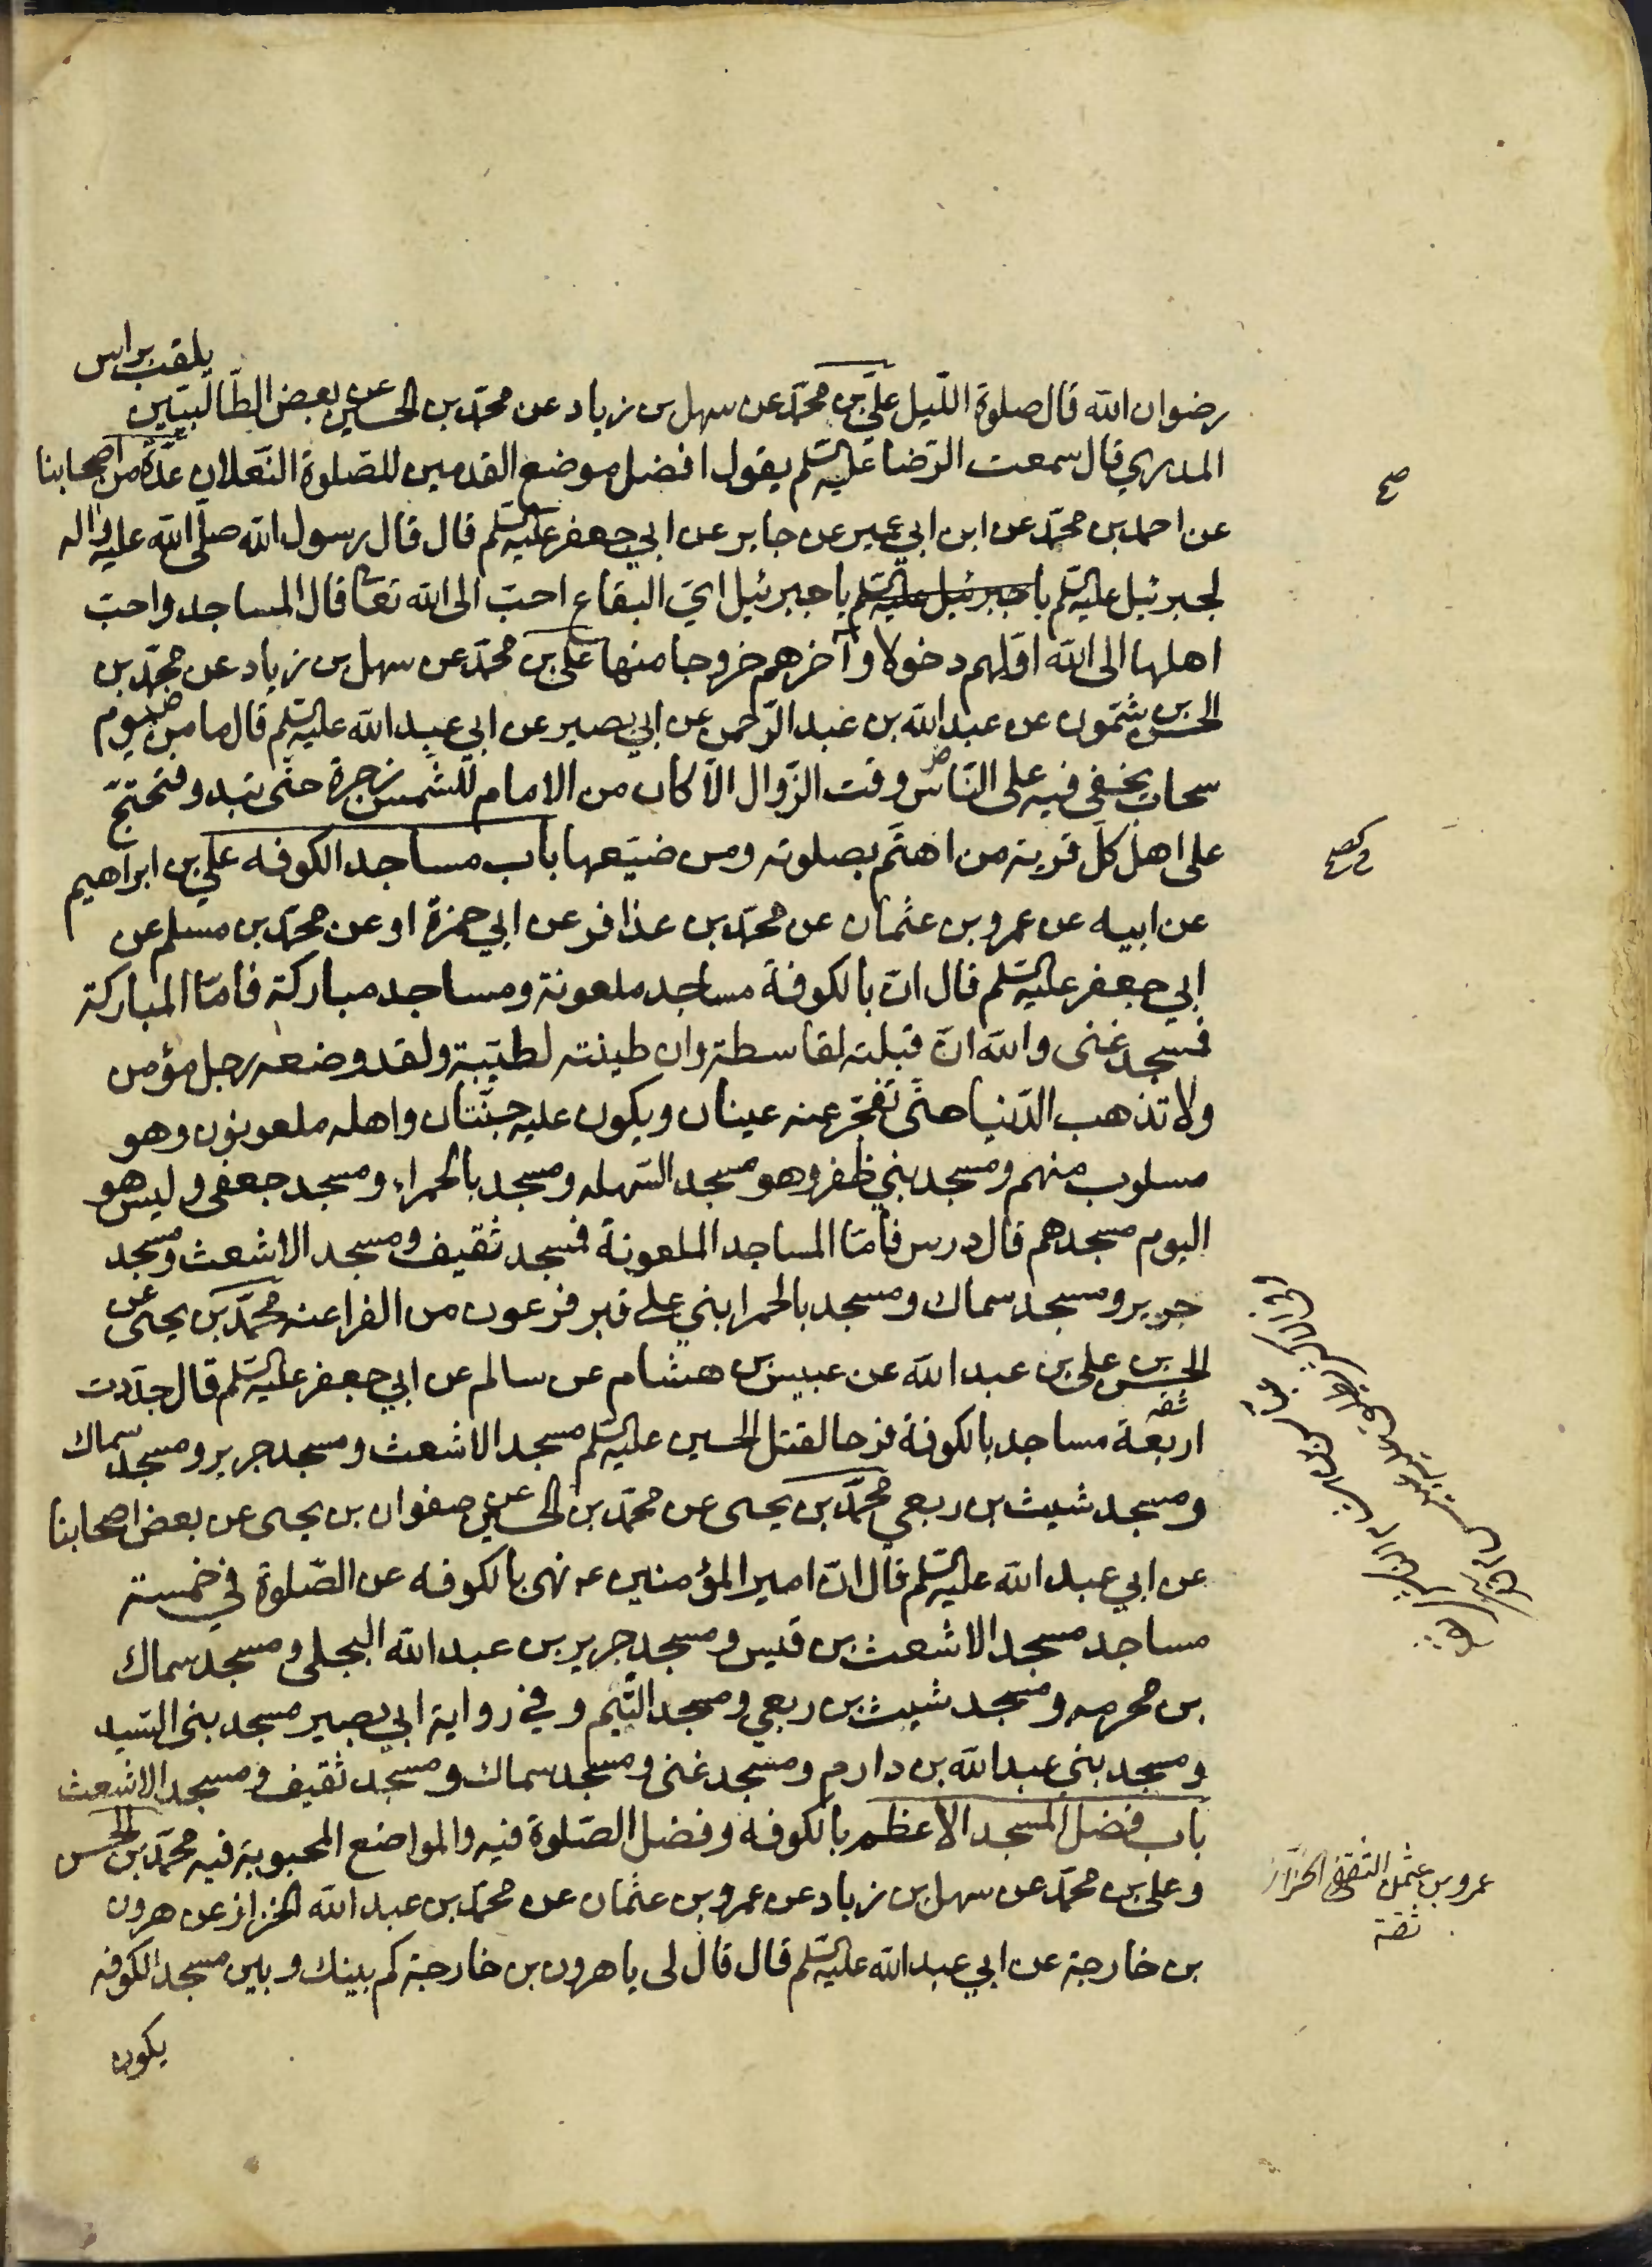 رضوان الله قال صلوة اللّيل علّي بن محمّد عن سهل بن زياد عن محمّد بن الحسين عن بعض الطّالبيّين يلقب براس
المدري قال سمعت الرّضا عليه السّلم يقول افضل موضع القدمين للصّلوة النّعلان عدّة من اصحابنا
عن احمد بن محمّد عن ابن ابي عمير عن جابر عن ابي جعفر عليه السّلم قال قال رسول الله صلّى الله عليه واله
لجبرئيل عليه السّلم يا جبرئيل عليه السّلم يا جبرئيل ايّ البقاع احبّ الى الله تعا قال المساجد واحبّ
اهلها الى الله اوّلهم دخولا وآخرهم خروجا منها على بن محمّد عن سهل بن زياد عن محمّد بن
الحسن بن شمّون عن عبد الله بن عبد الرّحمن عن ابي بصير عن ابي عبد الله عليه السّلم قال ما من يوم
سحاب يخفى فيه على النّاس وقت الزّوال الّا كان من الامام للشّمس زجرة حتّى تبدو فتحتجّ
على اهل كلّ قرية من اهتّم بصلوته ومن ضيّعها باب مساجد الكوفه علي بن ابراهيم
عن ابيه عن عمرو بن عثمان عن محمّد بن عذافر عن ابي حمزة او عن محمّد بن مسلم عن
ابي جعفر عليه السّلم قال انّ بالكوفة مساجد ملعونة ومساجد مباركة فامّا المباركة
فمسجد غنى والله انّ قبلته لقاسطة وان طينته لطيّبة ولقد وضعه رجل مؤمن
ولا تذهب الدّنيا حتّى تفجّر عنه عينان ويكون عليه جنّتان واهله ملعونون وهو
مسلوب منهم ومسجد بني ظفر وهو مسجد السّهله ومسجد بالحمراء ومسجد جعفى وليس هو
اليوم مسجدهم قال درس فأمّا المساجد الملعونة فمسجد ثقيف ومسجد الاشعث ومسجد
جرير ومسجد سماك ومسجد بالحمرا بني على قبر فرعون من الفراعنه محمّد بن يحيى عن
الحسن بن على بن عبد الله عن عبيس بن هشام عن سالم عن ابي جعفر عليه السّلم قال جدّدت
ثقه
اربعة مساجد بالكوفة فرحا لقتل الحسين عليه السّلم مسجد الاشعث ومسجد جرير ومسجد سماك
ومسجد شبث بن ربعي محمّد بن يحيى عن محمّد بن الحسين عن صفوان بن يحيى عن بعض اصحابنا
عن ابي عبد الله عليه السّلم قال انّ امير المؤمنين ع نهى بالكوفه عن الصّلوة في خمسة
مساجد مسجد الاشعث بن قيس ومسجد جرير بن عبد الله البجلى ومسجد سماك
بن محرمه ومسجد شبث بن ربعي ومسجد التّيم وفي رواية ابي بصير مسجد بني السّيد
ومسجد بني عبد الله بن دارم ومسجد غنى ومسجد سماك ومسجد ثقيف ومسجد الاشعث
باب فضل المسجد الأعظم بالكوفه وفضل الصّلوة فيه والمواضع المحبوبة فيه محمّد بن الحسن
وعلى بن محمّد عن سهل بن زياد عن عمرو بن عثمان عن محمّد بن عبد الله الخزاز عن هرون
بن خارجة عن ابي عبد الله عليه السّلم قال قال لى يا هرون بن خارجة كم بينك وبين مسجد الكوفه
يكون
صح
عمرو بن عثمن الثقفى الخزّاز
ثقة